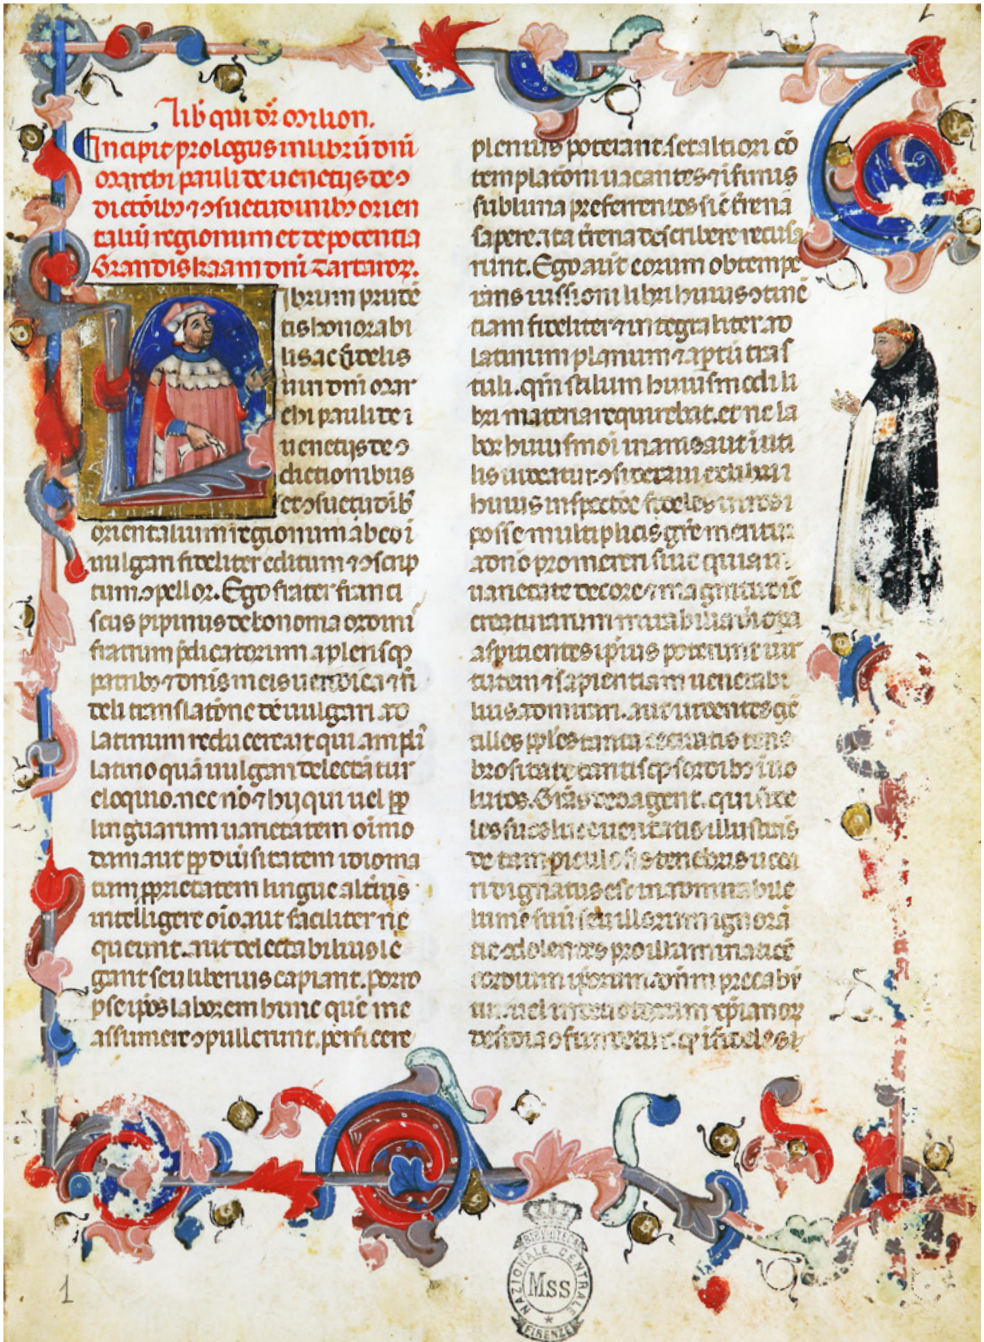 lib' qui dr̄ milion.
Incipit prologus in librū dn̄i
marchi pauli de uenetijs de ↄ
dictōibꝫ ⁊ ↄsuetudinibꝫ orien
taliū regionum et de potentia
Grandis kaam dn̄i Tartaroꝝ.
Librum prudē
tis honorabi
lis ac fidelis
uiri dn̄i mar
chi pauli de
uenetijs de ↄ
dictionibus
et ↄsuetudīb'
orientalium regionum ab eo ī
uulgari fideliter editum ⁊ ↄscrip
tum ↄpellor. Ego frater franci
scus pipinus de bononia ordinis
fratrum p̄dicatorum a plerisqꝫ
patribꝫ ⁊ dn̄is meis ueridica ⁊ fi
deli translatōne de uulgari ad
latinum reducere. ut qui ampli'
latino quā uulgari delectātur
eloquio. nec nō ⁊ hij qui uel ꝓp
linguarum uarietatem oīmo
dam. aut ꝓp diuisitatem idioma
tum ꝓprietatem lingue alterius
intelligere oīo. aut faciliter ne
queunt. aut delectabilius le
gant seu liberius capiant. porro
ꝑ se ip̄os laborem hunc quē me
assumere ↄpulerunt. perficere
plenius poterant. set altiori cō
templatoni uacantes ⁊ ifimis
sublimia preferentes sic t̄rena
sapere. ita t̄rena describere recusa
runt. Ego aut̄ eorum obtempe
rans iussioni libri huius ↄtinē
tiam fideliter ⁊ integraliter ad
latinum planum ⁊ aptū tras
tuli. qm̄ stilum huiusmodi li
bri materia requirebat. et ne la
bor huiusmōi inanis aut iuti
lis uideatur. ↄsideraui ex libri
huius inspectōe fideles uiros
posse multiplicis gr̄e meritum
a dn̄o promereri siue quia in
uarietate decore ⁊ magnitudīe
creaturarum mirabilia dei opa
aspicientes ipsius poterunt uir
tutem ⁊ sapientiam uenerabi
liter admirari. aut uidentes gē
tiles pp̄los tanta cecitatis tene
brositate tantisqꝫ sordibꝫ īuo
lutos. Gr̄as deo agent. qui fide
les suos luce ueritatis illustrās
de tam piculosis tenebris uoca
re dignatus est in admirabile
lumē suū seu illorum ignorā
tie ↄdolentes pro illuminatiōe
cordium ip̄orum. dn̄m precabū
tur. uel indeuotorum xp̄ianoꝝ
desidia ↄfundetur. q̄ ifideles
1
BIBLIOTECA
NAZIONALE CENTRALE
Mss
FIRENZE